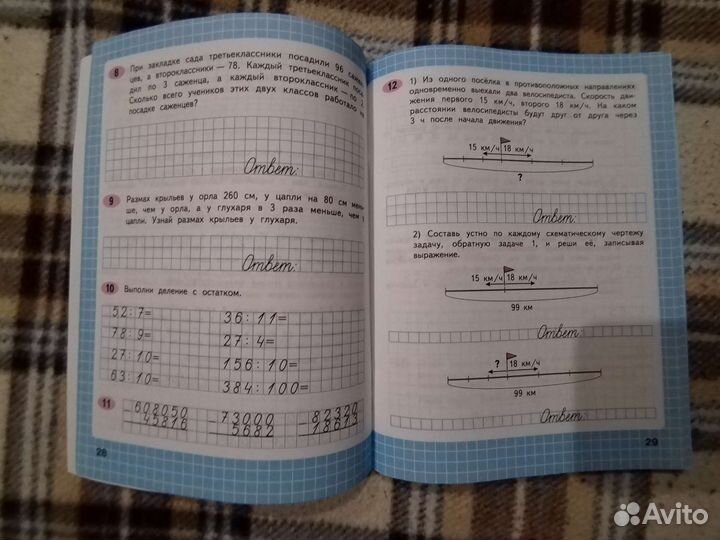 8 При закладке сада третьеклассники посадили 96 сажен-
цев, а второклассники — 78. Каждый третьеклассник поса-
дил по 3 саженца, а каждый второклассник — по 2.
Сколько всего учеников этих двух классов работало на
посадке саженцев?
Ответ:
9 Размах крыльев у орла 260 см, у цапли на 80 см мень-
ше, чем у орла, а у глухаря в 3 раза меньше, чем у
цапли. Узнай размах крыльев у глухаря.
Ответ:
10 Выполни деление с остатком.
52:7= 36:11=
78:9= 27:4=
27:10= 156:10=
63:10= 384:100=
11 608050 73000 82320
− 45816 − 5682 − 18613
28
12 1) Из одного посёлка в противоположных направлениях
одновременно выехали два велосипедиста. Скорость дви-
жения первого 15 км/ч, второго 18 км/ч. На каком
расстоянии велосипедисты будут друг от друга через
3 ч после начала движения?
15 км/ч 18 км/ч
?
Ответ:
2) Составь устно по каждому схематическому чертежу
задачу, обратную задаче 1, и реши её, записывая
выражение.
15 км/ч 18 км/ч
99 км
Ответ:
? 18 км/ч
99 км
Ответ:
29
Avito